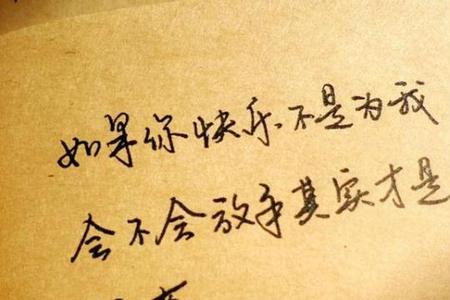 如果你快乐.不是为我
会不会放手其实才是